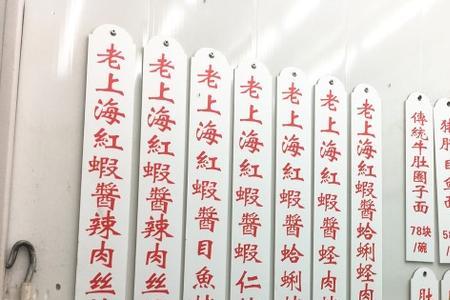 老上海紅蝦醬辣肉丝
老上海紅蝦醬辣肉丝
老上海紅蝦醬目魚
老上海紅蝦醬蝦仁
老上海紅蝦醬蛤蜊
老上海紅蝦醬蛏肉
老上海紅蝦醬蛤蜊蛏肉
傳統牛肚圈子面
78块
/碗